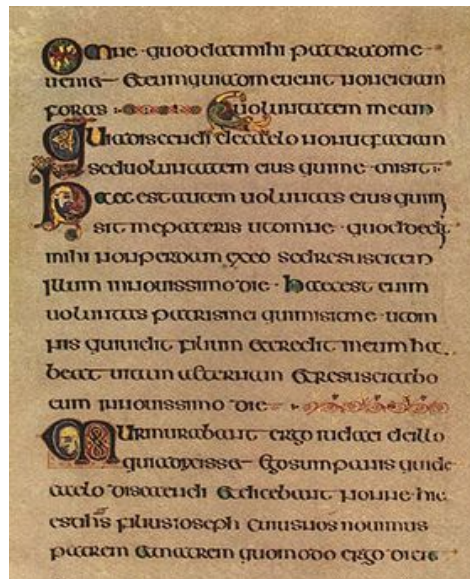 Omne · quod dat mihi pater ad me
ueniet Et eum qui ad me uenit non eiciam
foras uoluntatem meam
Quia discendi de caelo non ut faciam
sed uoluntatem eius qui me · misit
haec est autem uoluntas eius qui mi
sit me pateris ut omne · quod dedit
mihi non perdam ex eo sed resuscitem
illum in nouissimo die · haec est enim
uoluntas patris mei qui misit me · ut om
nis qui uidit filium et credit in eum ha
beat uitam aeternam Et resuscitabo
eum in nouissimo die
Murmurabant ergo iudaei de illo
quia dixisset Ego sum panis qui de
caelo discendi Et dicebant nonne hic
est ihs filius ioseph cuius nos nouimus
patrem Et matrem quomodo ergo dicit